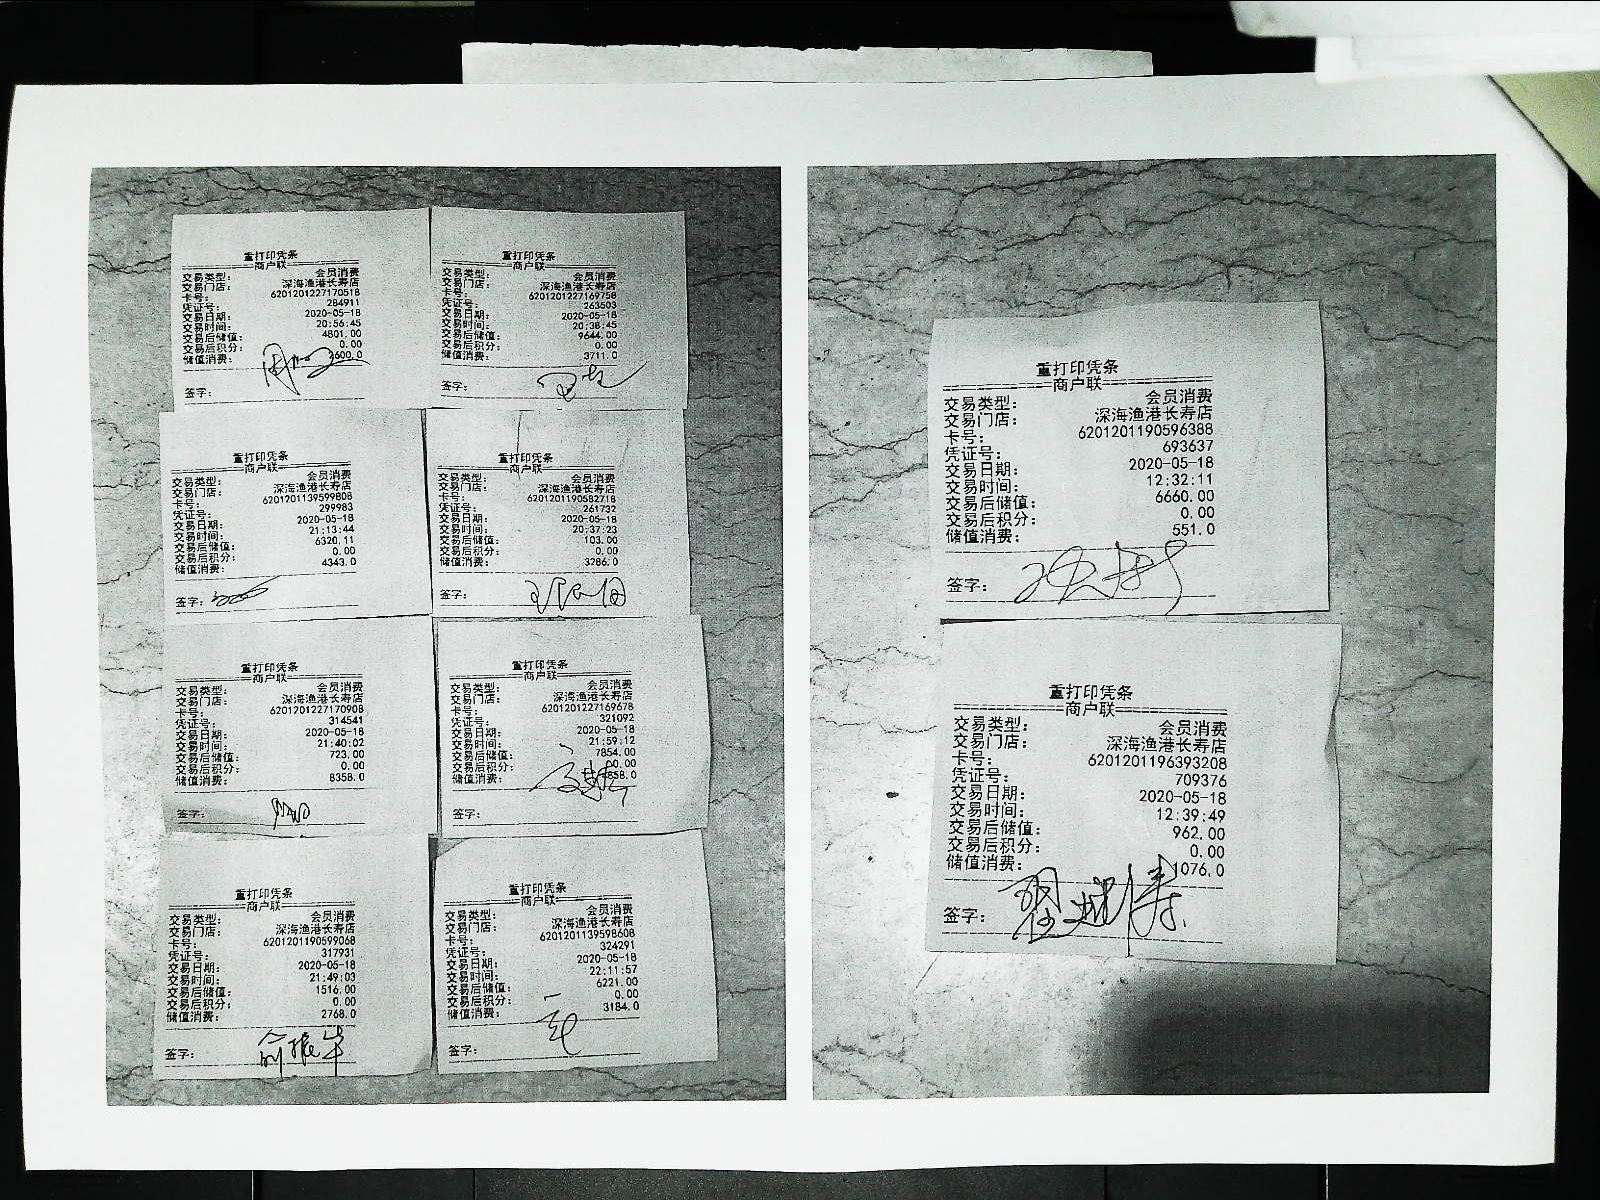 重打印凭条
商户联
交易类型： 会员消费
交易门店： 深海渔港长寿店
卡号： 6201201227170518
凭证号： 284911
交易日期： 2020-05-18
交易时间： 20:56:45
交易后储值： 4801.00
交易后积分： 0.00
储值消费： 3600.0
签字：
重打印凭条
商户联
交易类型： 会员消费
交易门店： 深海渔港长寿店
卡号： 6201201227169758
凭证号： 263503
交易日期： 2020-05-18
交易时间： 20:38:45
交易后储值： 9644.00
交易后积分： 0.00
储值消费： 3711.0
签字：
重打印凭条
商户联
交易类型： 会员消费
交易门店： 深海渔港长寿店
卡号： 6201201139599808
凭证号： 299983
交易日期： 2020-05-18
交易时间： 21:13:44
交易后储值： 6320.11
交易后积分： 0.00
储值消费： 4343.0
签字：
重打印凭条
商户联
交易类型： 会员消费
交易门店： 深海渔港长寿店
卡号： 6201201190582718
凭证号： 261732
交易日期： 2020-05-18
交易时间： 20:37:23
交易后储值： 103.00
交易后积分： 0.00
储值消费： 3286.0
签字：
重打印凭条
商户联
交易类型： 会员消费
交易门店： 深海渔港长寿店
卡号： 6201201227170908
凭证号： 314541
交易日期： 2020-05-18
交易时间： 21:40:02
交易后储值： 723.00
交易后积分： 0.00
储值消费： 8358.0
签字：
重打印凭条
商户联
交易类型： 会员消费
交易门店： 深海渔港长寿店
卡号： 6201201227169678
凭证号： 321092
交易日期： 2020-05-18
交易时间： 21:59:12
交易后储值： 7854.00
交易后积分： 0.00
储值消费：
签字：
重打印凭条
商户联
交易类型： 会员消费
交易门店： 深海渔港长寿店
卡号： 6201201190599068
凭证号： 317931
交易日期： 2020-05-18
交易时间： 21:49:03
交易后储值： 1516.00
交易后积分： 0.00
储值消费： 2768.0
签字： 俞振华
重打印凭条
商户联
交易类型： 会员消费
交易门店： 深海渔港长寿店
卡号： 6201201139598608
凭证号： 324291
交易日期： 2020-05-18
交易时间： 22:11:57
交易后储值： 6221.00
交易后积分： 0.00
储值消费： 3184.0
签字：
重打印凭条
商户联
交易类型： 会员消费
交易门店： 深海渔港长寿店
卡号： 6201201190596388
凭证号： 693637
交易日期： 2020-05-18
交易时间： 12:32:11
交易后储值： 6660.00
交易后积分： 0.00
储值消费： 551.0
签字：
重打印凭条
商户联
交易类型： 会员消费
交易门店： 深海渔港长寿店
卡号： 6201201196393208
凭证号： 709376
交易日期： 2020-05-18
交易时间： 12:39:49
交易后储值： 962.00
交易后积分： 0.00
储值消费： 1076.0
签字：